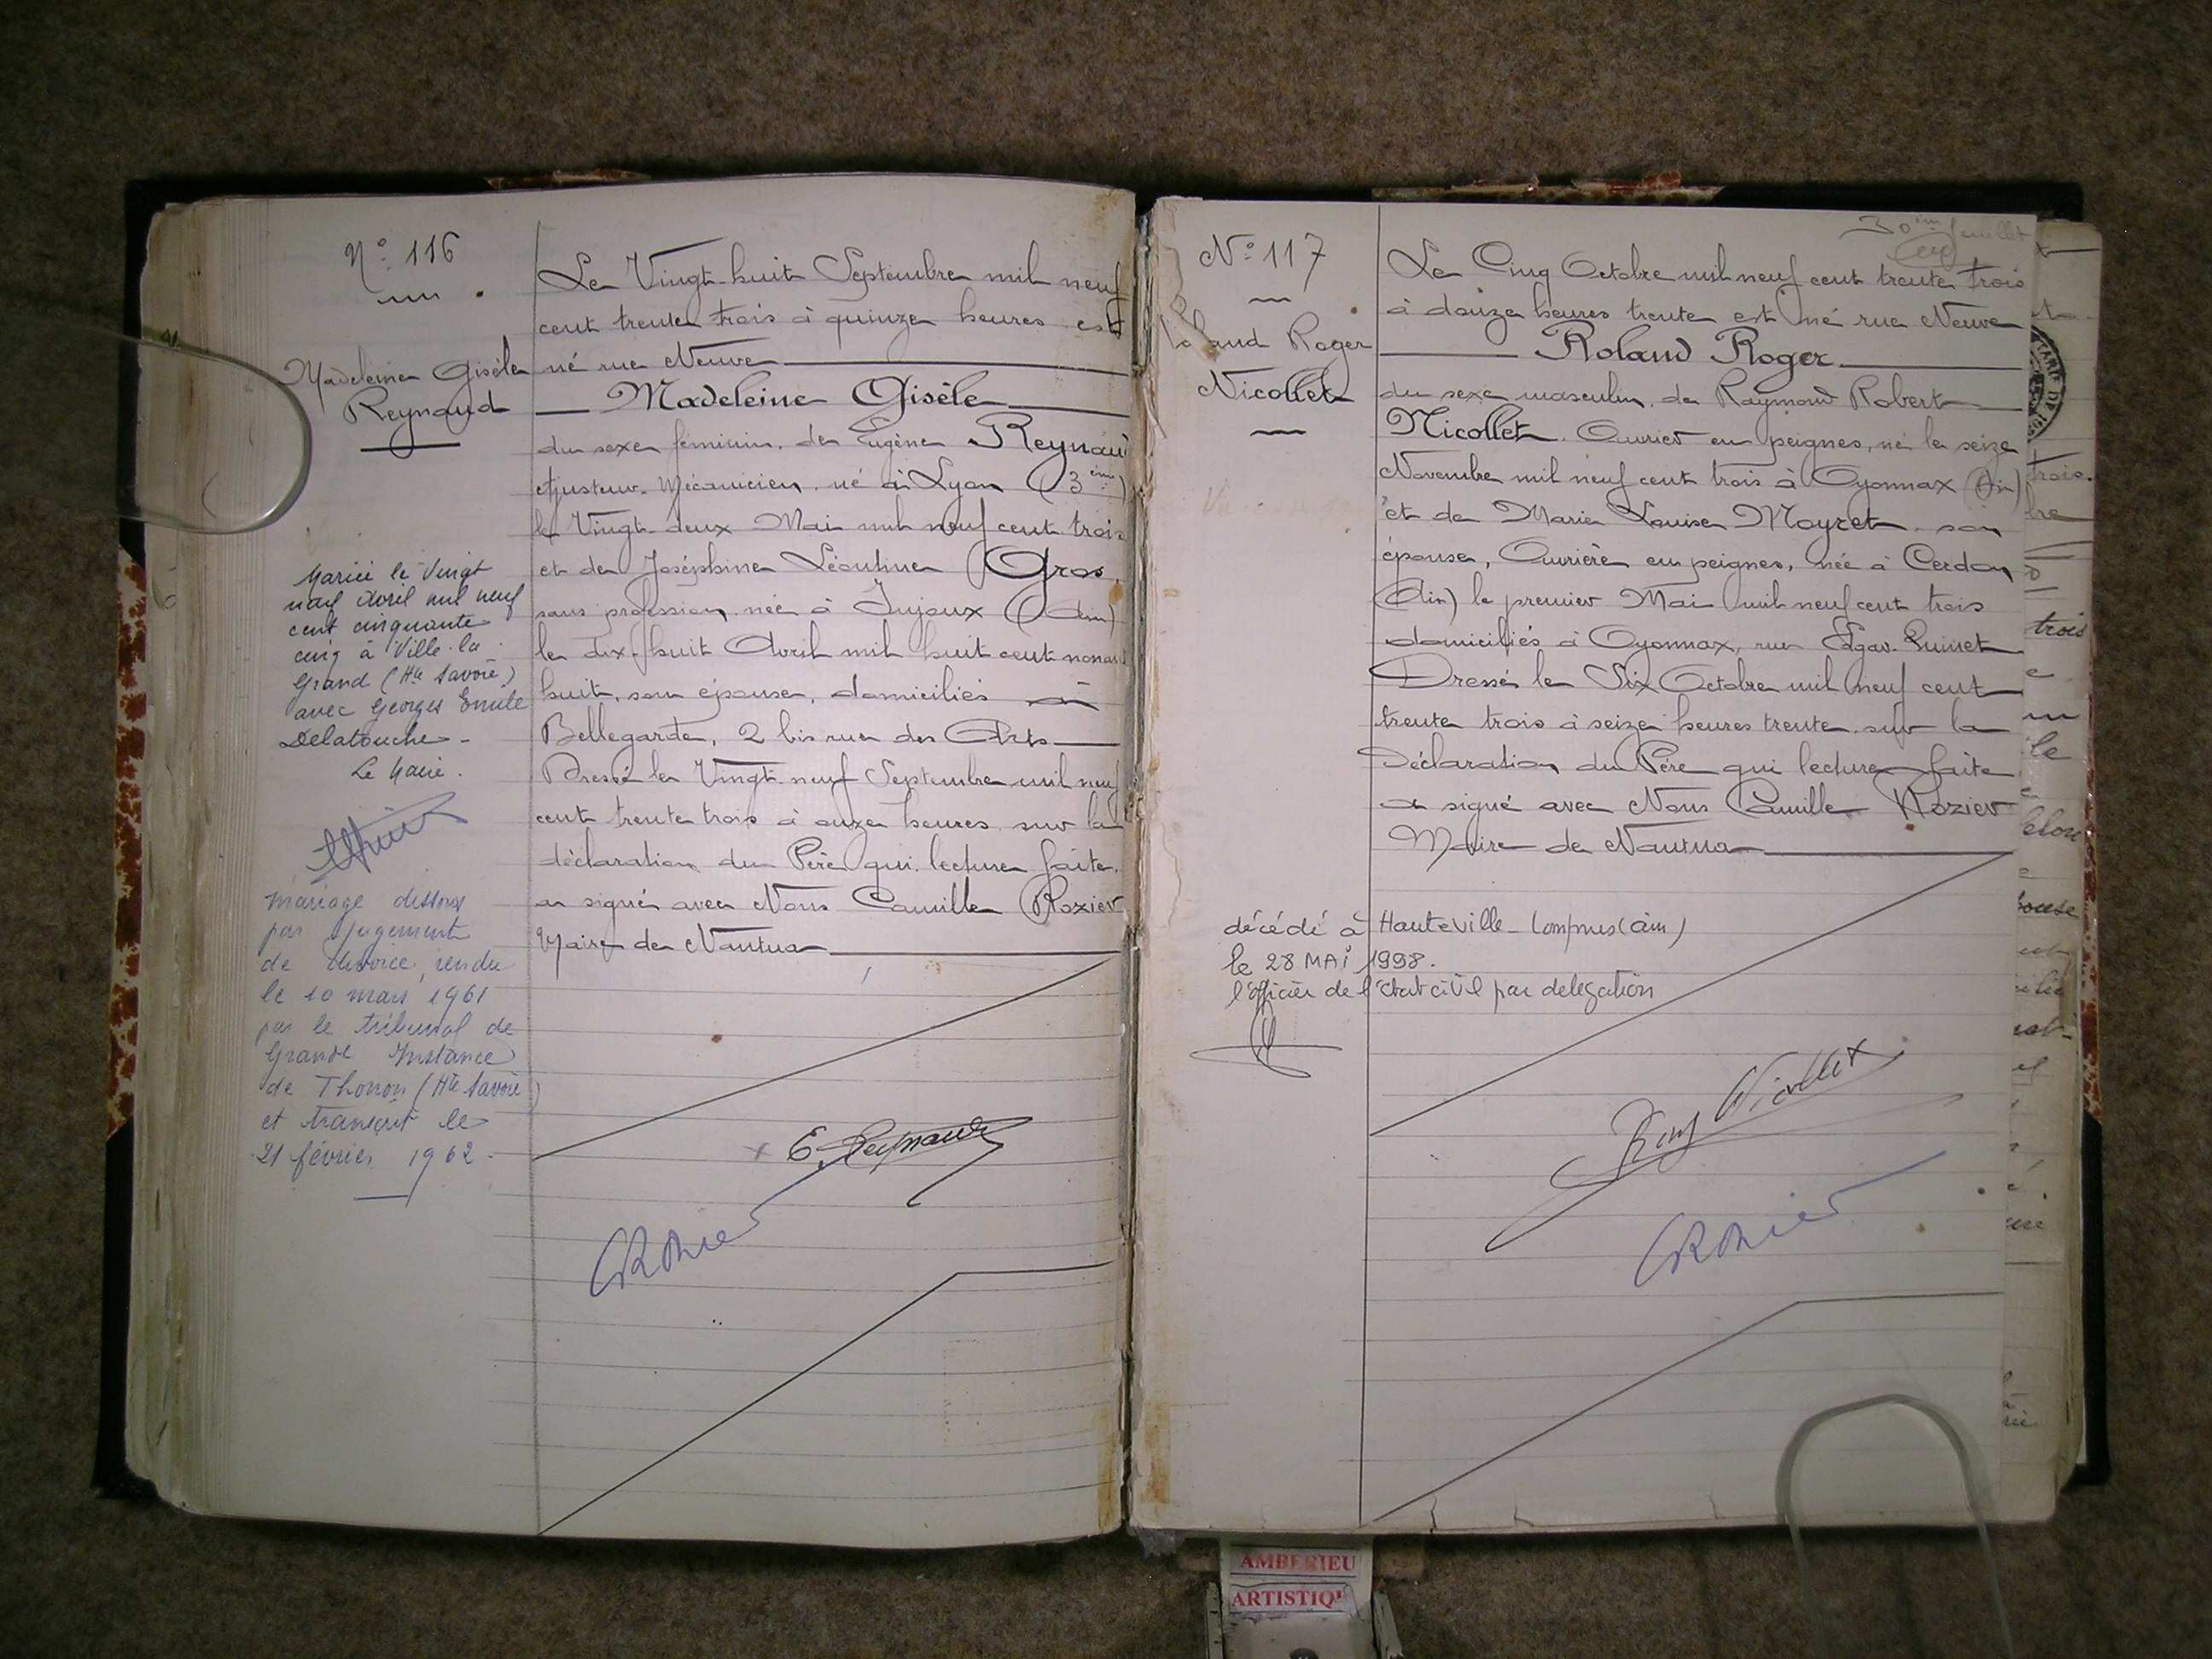 N° 116
Madeleine Gisèle
Reynaud
Le Vingt-huit Septembre mil neuf
cent trente trois à quinze heures est
né rue Neuve
Madeleine Gisèle
du sexe féminin, de Eugène Reynaud
Ajusteur-Mécanicien, né à Lyon (3ème)
le Vingt-deux Mai mil neuf cent trois
et de Joséphine Léontine Gros,
sans profession, née à Jujeux (Ain)
le dix-huit Avril mil huit cent nonante
huit, son épouse, domiciliés à
Bellegarde, 2 bis rue des Arts
Dressé le Vingt-neuf Septembre mil neuf
cent trente trois à onze heures, sur la
déclaration du Père qui, lecture faite,
a signé avec Nous Camille Rozier
Maire de Nantua
Mariée le Vingt
neuf Avril mil neuf
cent cinquante
cinq à Ville-la
Grand (Hte Savoie)
avec Georges Emile
Delatouche -
Le Maire.
Mariage dissous
par jugement
de divorce, rendu
le 10 mars 1961
par le tribunal de
Grande Instance
de Thonon (Hte Savoie)
et transcrit le
21 février 1962.
E. Reynaud
CRozier
30ème feuillet
N° 117
Roland Roger
Nicollet
Le Cinq Octobre mil neuf cent trente trois
à douze heures trente est né rue Neuve
Roland Roger
du sexe masculin, de Raymond Robert
Nicollet, Ouvrier en peignes, né le seize
Novembre mil neuf cent trois à Oyonnax (Ain)
et de Marie Louise Moyret, son
épouse, Ouvrière en peignes, née à Cerdon
(Ain) le premier Mai mil neuf cent trois
domiciliés à Oyonnax, rue Edgar-Quinet
Dressé le Six Octobre mil neuf cent
trente trois à seize heures trente, sur la
Déclaration du Père qui lecture faite
a signé avec Nous Camille Rozier
Maire de Nantua
décédé à Hauteville-Lompnes (Ain)
le 28 MAI 1998.
l'officier de l'état civil par delegation
Ray Nicollet
CRozier
trois.
trois
AMBERIEU
ARTISTIQ